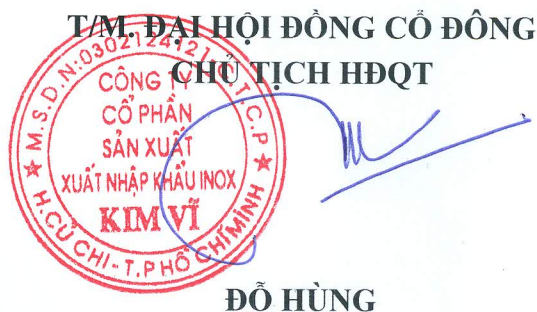 T/M. ĐẠI HỘI ĐỒNG CỔ ĐÔNG
CHỦ TỊCH HĐQT
M.S.D.N:0302124121-C.T.C.P
CÔNG TY
CỔ PHẦN
SẢN XUẤT
XUẤT NHẬP KHẨU INOX
KIM VĨ
H.CỦ CHI - T.P HỒ CHÍ MINH
ĐỖ HÙNG